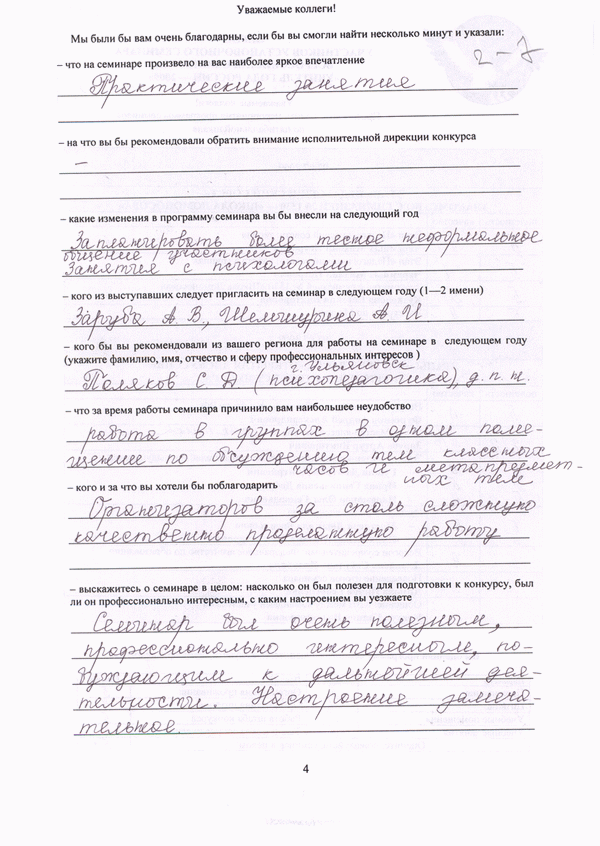 Уважаемые коллеги!
Мы были бы вам очень благодарны, если бы вы смогли найти несколько минут и указали:
2-7
– что на семинаре произвело на вас наиболее яркое впечатление
Практические занятия
– на что вы бы рекомендовали обратить внимание исполнительной дирекции конкурса
–
– какие изменения в программу семинара вы бы внесли на следующий год
Запланировать более тесное неформальное
общение участников
Занятия с психологами
– кого из выступавших следует пригласить на семинар в следующем году (1—2 имени)
Заруба А. В., Шемшурина А. И
– кого бы вы рекомендовали из вашего региона для работы на семинаре в следующем году
(укажите фамилию, имя, отчество и сферу профессиональных интересов )
г. Ульяновск
Поляков С Д. (психопедагогика), д. п. н.
– что за время работы семинара причинило вам наибольшее неудобство
работа в группах в одном поме-
щении по обсуждению тем классных
часов и метапредмет-
ных тем
– кого и за что вы хотели бы поблагодарить
Организаторов за столь сложную
качественно проделанную работу
– выскажитесь о семинаре в целом: насколько он был полезен для подготовки к конкурсу, был
ли он профессионально интересным, с каким настроением вы уезжаете
Семинар был очень полезным,
профессионально интересным, по-
буждающим к дальнейшей дея-
тельности. Настроение замеча-
тельное.
4